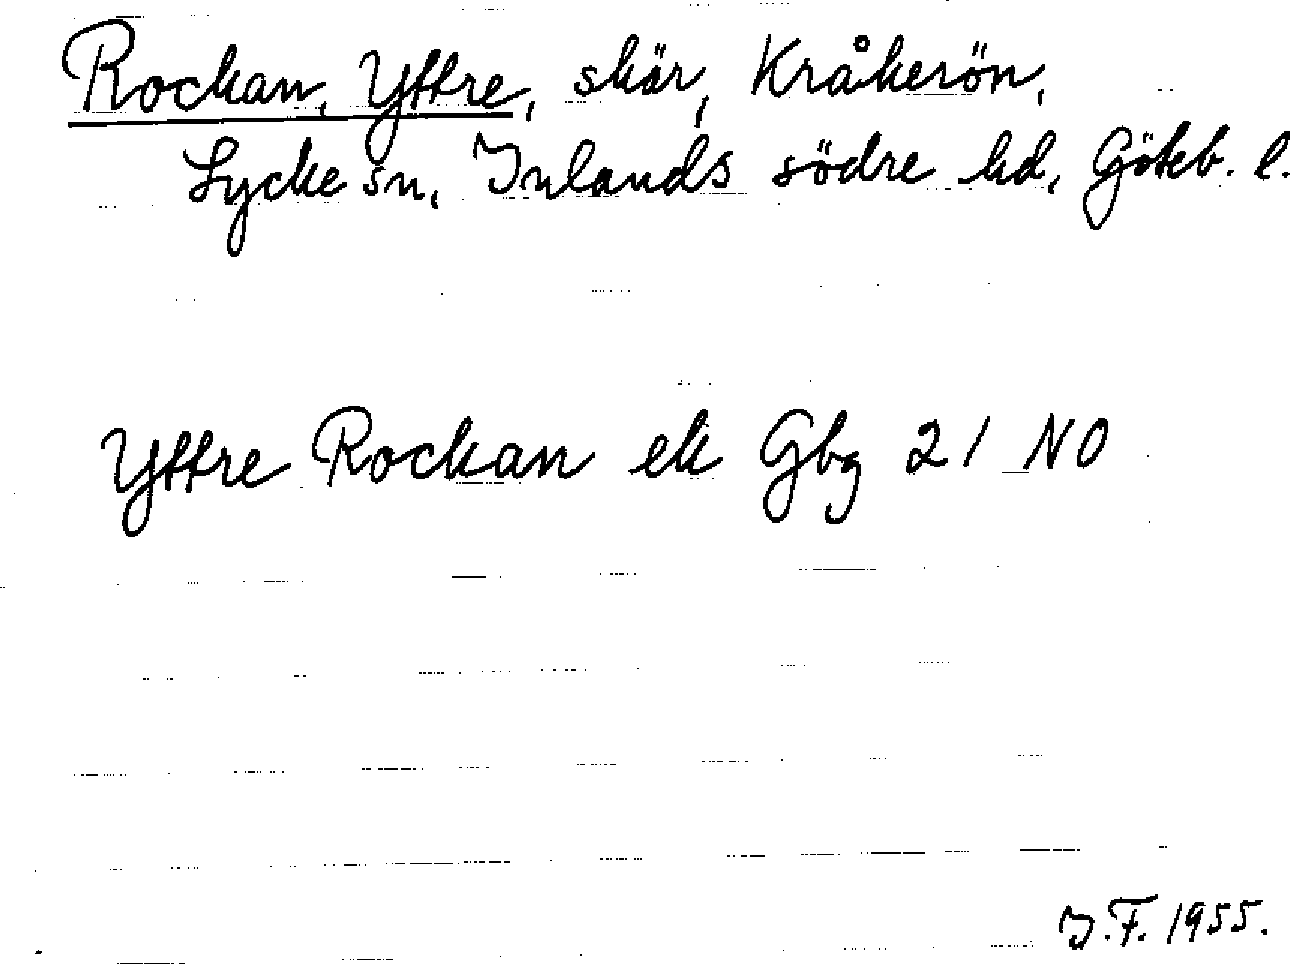 Rockan, Yttre, skär, Kråkerön,
Lycke sn, Inlands södre hd, Göteb. l.
Yttre Rockan ek Gbg 21 NO
I.F. 1955.